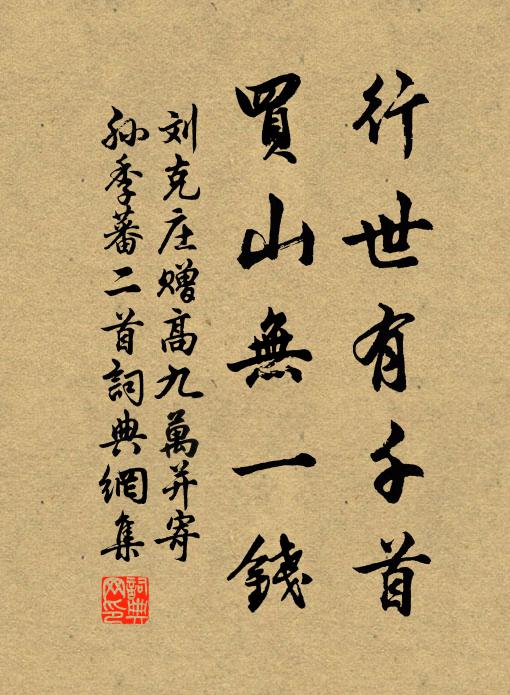 行世有千首
買山無一錢
刘克庄赠高九萬并寄
孙季蕃二首詞典網集
詞典网印